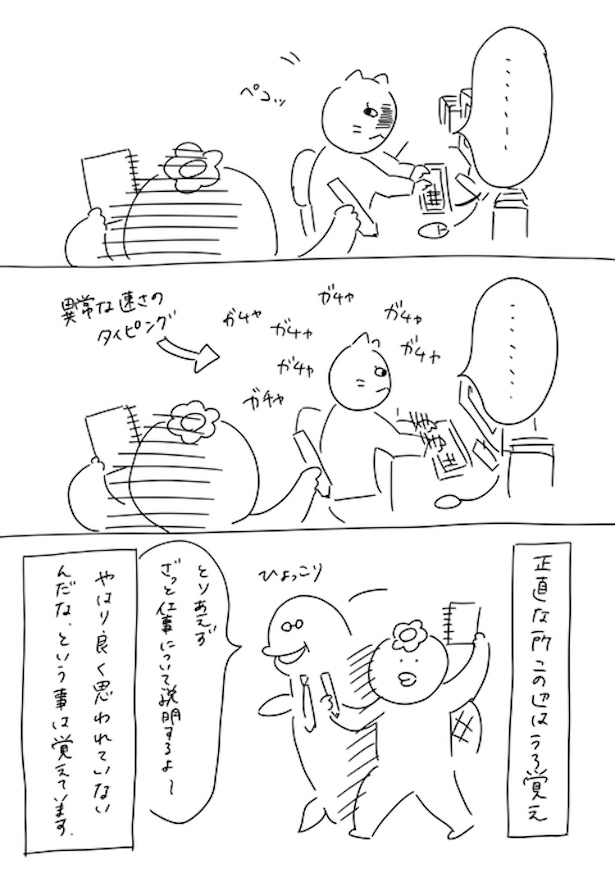 ペコッ
・・・・・・・
異常な速さの
タイピング
ガチャ
ガチャ
ガチャ
ガチャ
ガチャ
ガチャ
ガチャ
・・・・・・・
正直な所この辺はうろ覚え
ひょっこり
とりあえず
ざっと仕事について説明するよ〜
やはり良く思われていない
んだな、という事は覚えています。